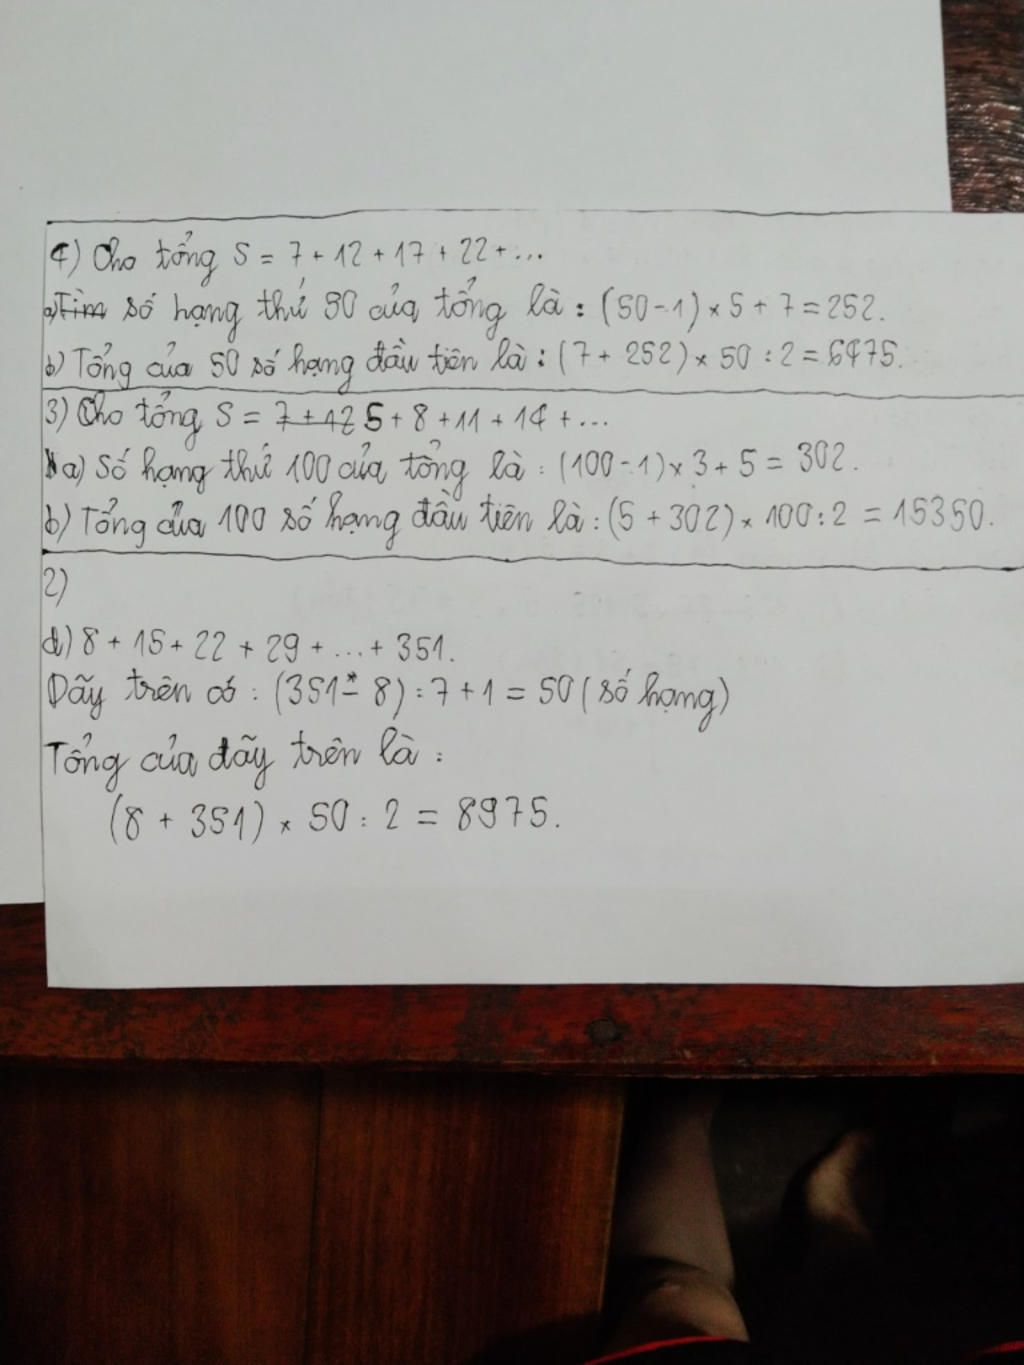 4) Cho tổng S = 7 + 12 + 17 + 22 + ...
a) Tìm số hạng thứ 50 của tổng là : (50-1) × 5 + 7 = 252.
b) Tổng của 50 số hạng đầu tiên là : (7 + 252) × 50 : 2 = 6475.
3) Cho tổng S = 7 + 12 5 + 8 + 11 + 14 + ...
a) Số hạng thứ 100 của tổng là : (100 - 1) × 3 + 5 = 302.
b) Tổng của 100 số hạng đầu tiên là : (5 + 302) × 100 : 2 = 15350.
2)
d) 8 + 15 + 22 + 29 + ... + 351.
Dãy trên có : (351 - 8) : 7 + 1 = 50 (số hạng)
Tổng của dãy trên là :
(8 + 351) × 50 : 2 = 8975.